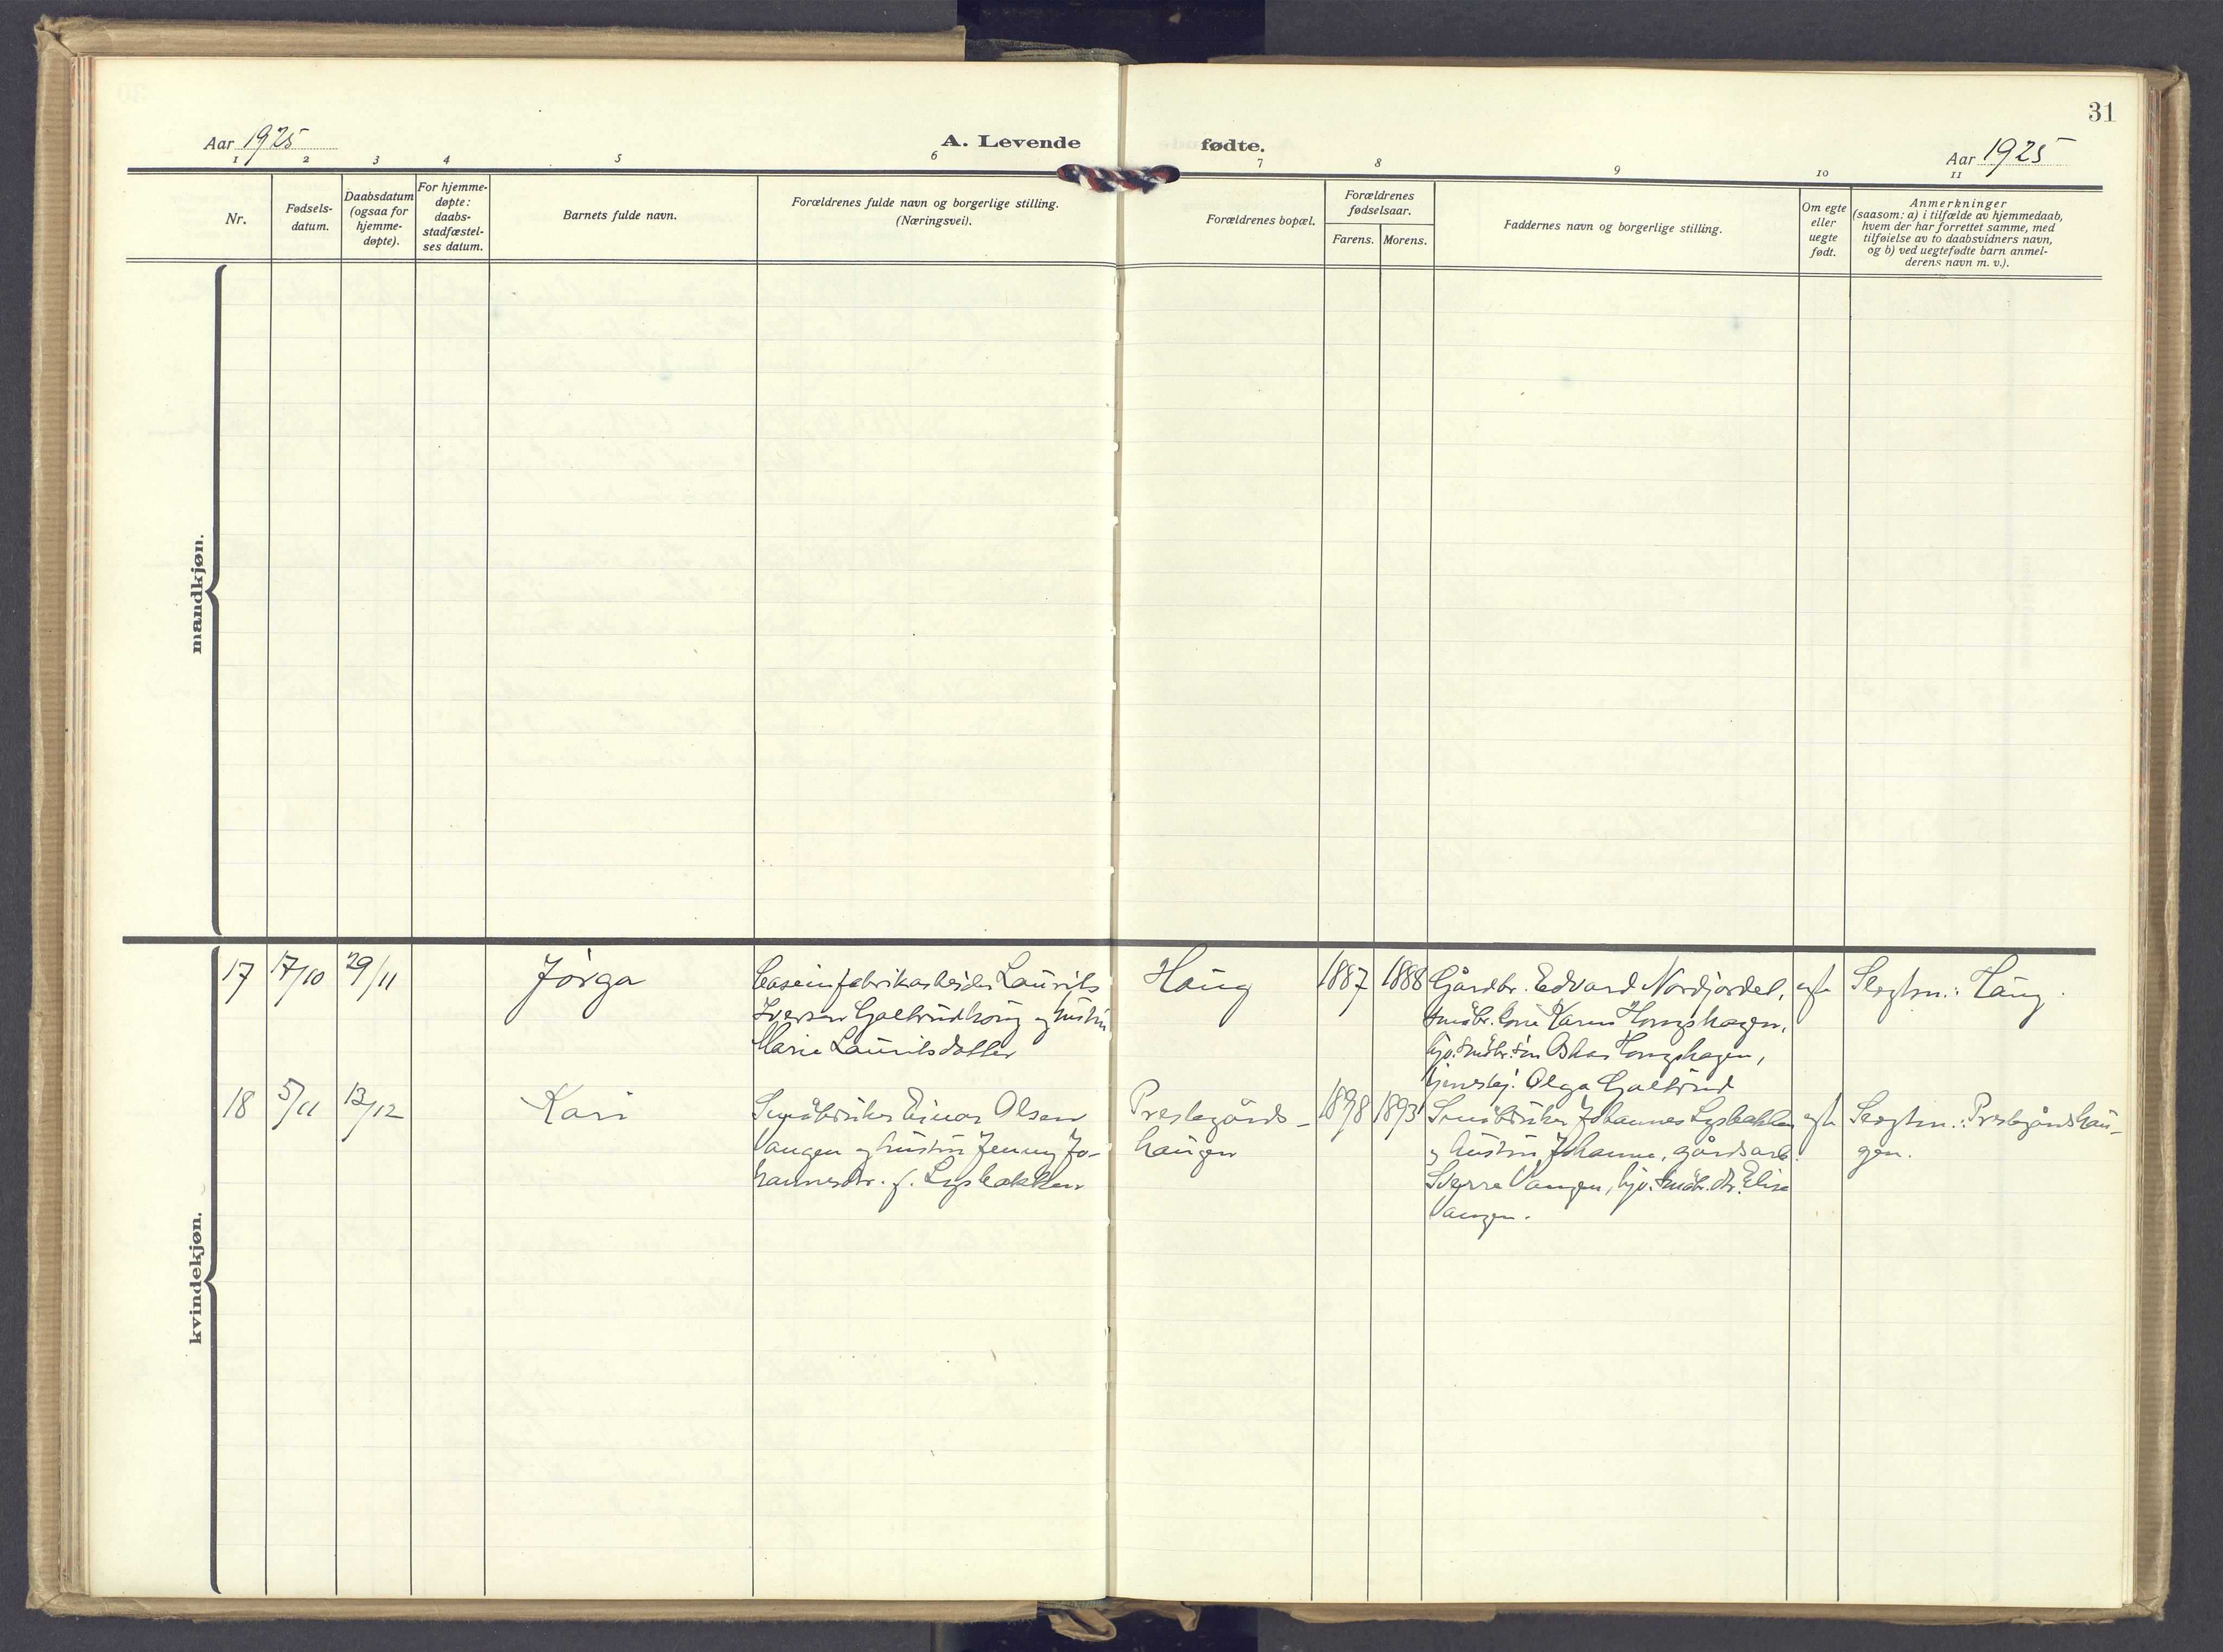 31
Aar 1925
A. Levende fødte.
Aar 1925
1 2 3 4 5 6 7 8 9 10 11
Nr.
Fødsels-
datum.
Daabsdatum
(ogsaa for
hjemme-
døpte).
For hjemme-
døpte:
daabs-
stadfæstel-
ses datum.
Barnets fulde navn.
Forældrenes fulde navn og borgerlige stilling.
(Næringsvei).
Forældrenes bopæl.
Forældrenes
fødselsaar.
Farens. Morens.
Faddernes navn og borgerlige stilling.
Om egte
eller
uegte
født.
Anmerkninger
(saasom: a) i tilfælde av hjemmedaab,
hvem der har forrettet samme, med
tilføielse av to daabsvidners navn,
og b) ved uegtefødte barn anmel-
derens navn m. v.).
mandkjøn.
kvindekjøn.
17
17/10
29/11
Jørga
Caseinfabrikarbeider Laurits
Iversen Galtrudhaug og hustru
Marie Lauritsdatter
Haug
1887 1888
Gårdbr. Edvard Nordjordet,
Karen Haugshagen,
Haugshagen,
Olga Galtrud
egte
Slegtsn.: Haug.
18
5/11
13/12
Kari
Småbruker Einar Olsen
Vangen og hustru Jenny Jo-
hannesdtr. f. Lysbakken
Prestegårds-
haugen
1898 1893
Småbruker Johannes Lysbakken
og hustru Johanne, gårdsarb.
Sverre Vangen, hjv. småbr. dtr. Elise
Vangen.
egte
Slegtsn.: Prestegårdshau-
gen.